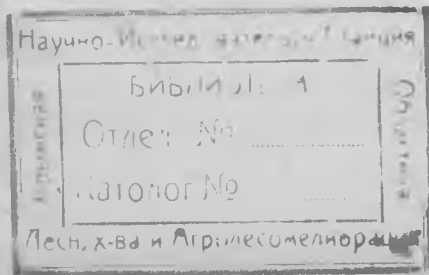 Научно-Исслед Станция
Крымская
Опытная
Отдел №
Каталог №
Лесн. х-ва и Агролесомелиорации